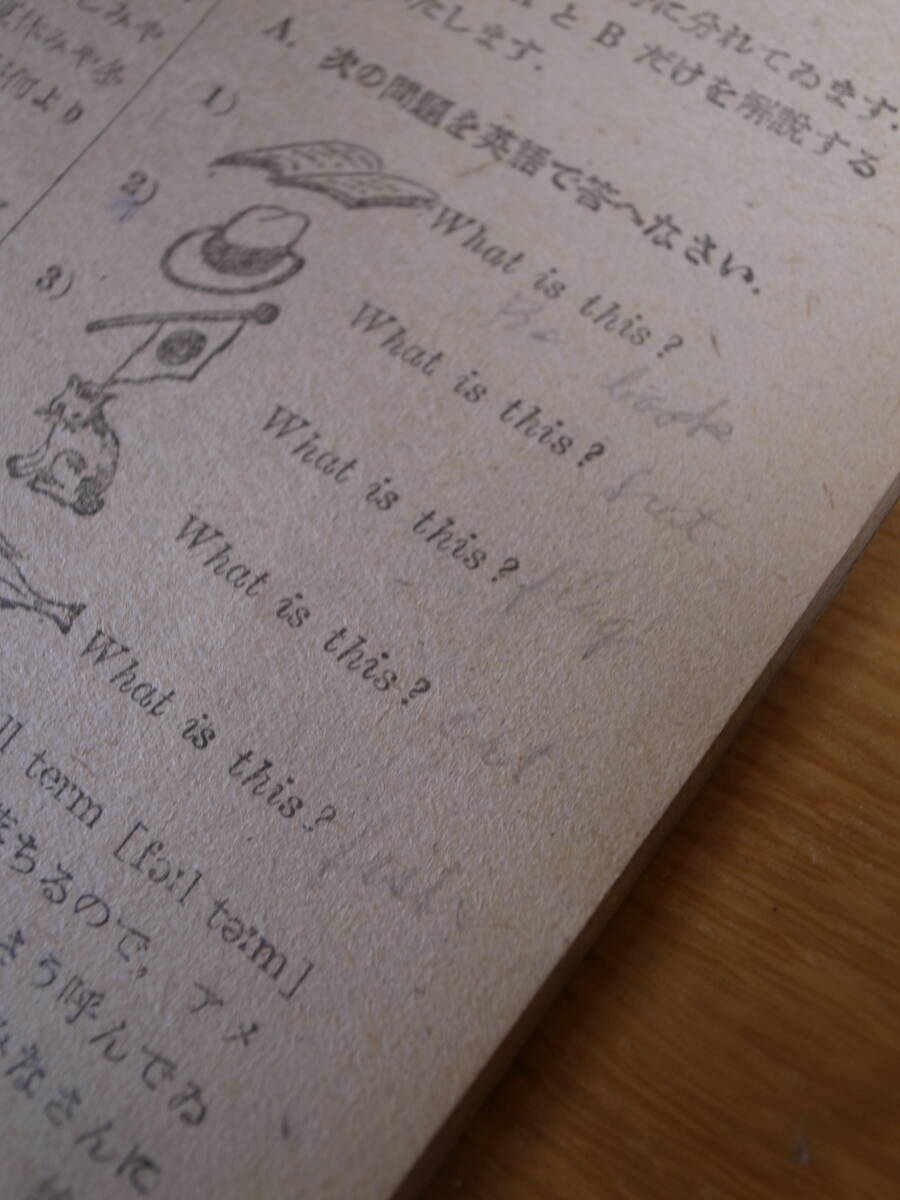 しみや
休みや冬
何より
に分れてゐます.
と B だけを解説する
たします.
A. 次の問題を英語で答へなさい.
1) What is this?
book
2) What is this?
hat
3) What is this?
flag
What is this?
cat
What is this?
fish
ll term [fɔːl təːm]
ちるので, アメ
さう呼んでゐ
みなさんに